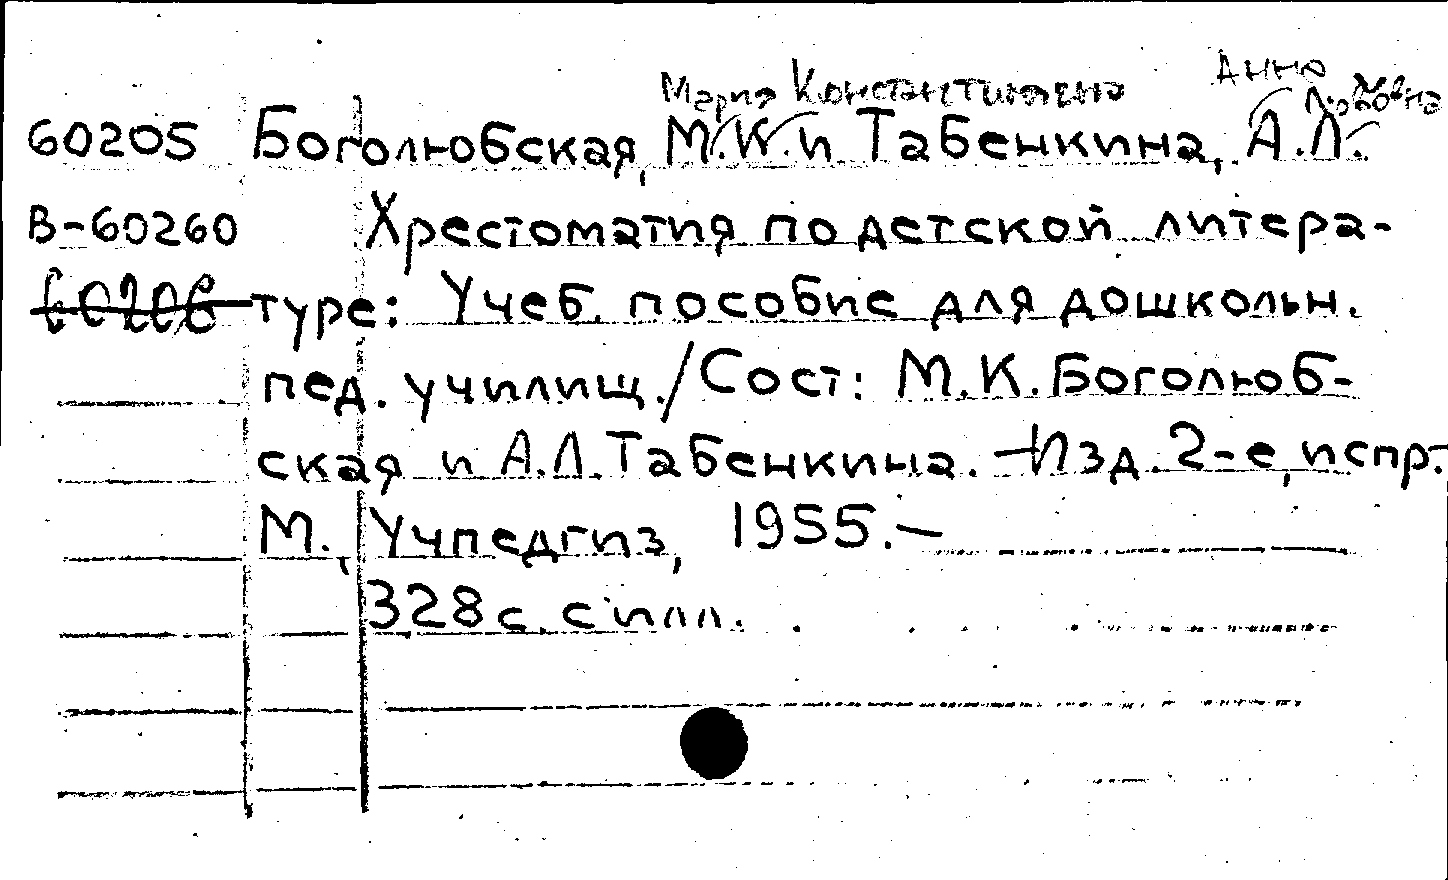 Мария Константиновна Анна Львовна
60205 Боголюбская, М.К. и Табенкина, А.Л.
В-60260 Хрестоматия по детской литера-
60206 туре: Учеб. пособие для дошкольн.
пед. училищ./Сост: М.К.Боголюб-
ская и А.Л.Табенкина. — Изд. 2-е, испр.-
М., Учпедгиз, 1955. —
328 с. с илл.